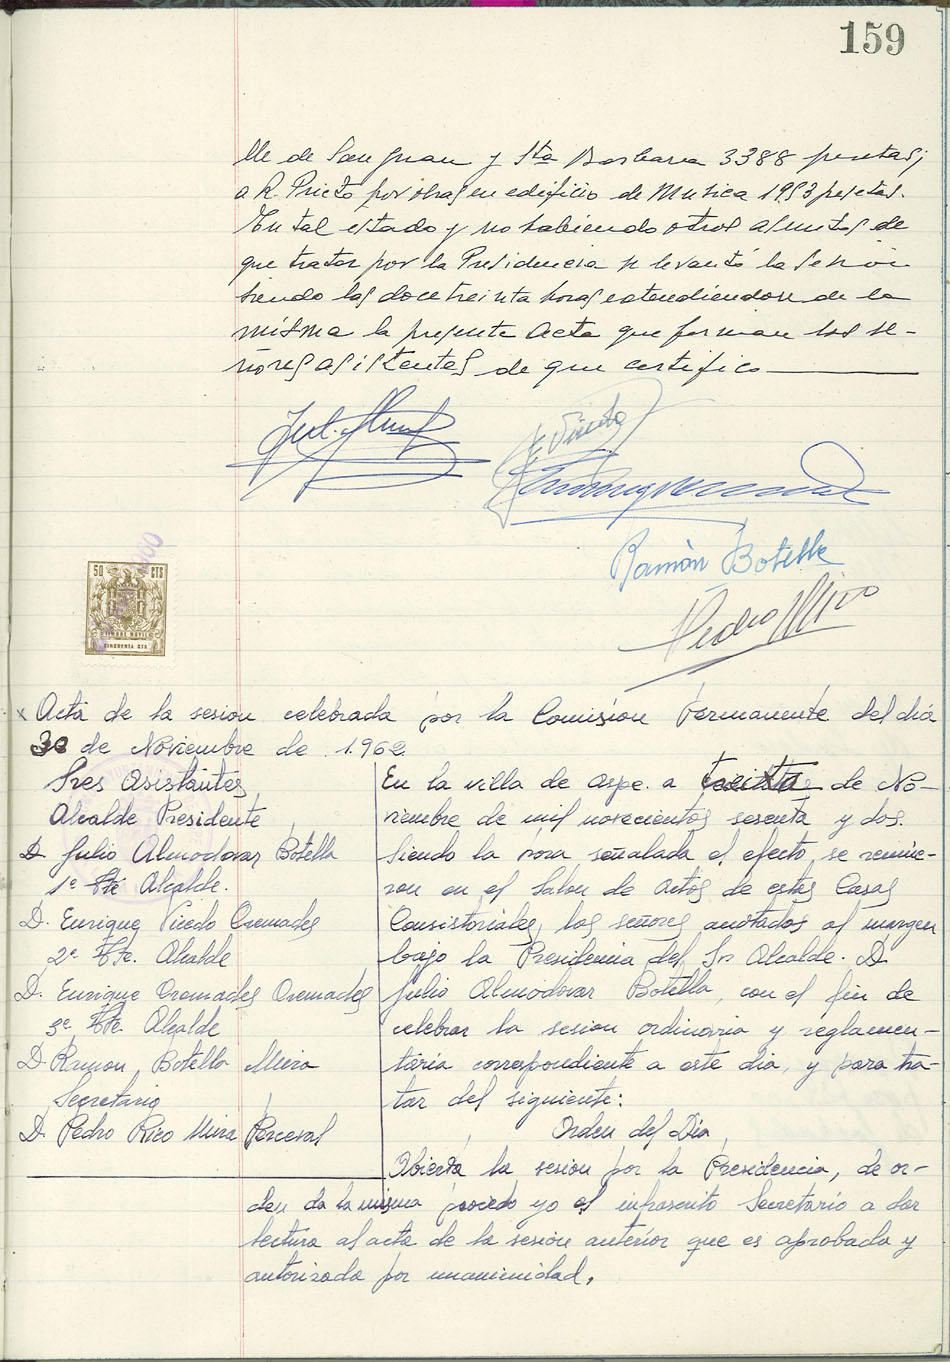 159
lle de San Juan y Sta Barbara 3388 pesetas;
a R. Prieto por obras en edificio de Musica 1953 pesetas.
En tal estado y no habiendo otros asuntos de
que tratar por la Presidencia se levantó la sesión
siendo las doce treinta horas extendiendose de la
misma la presente Acta que forman los se-
ñores asistentes de que certifico
Ramón Botella
Pedro Rico
50 CTS
TIMBRE MOVIL
CINCUENTA CTS
Acta de la sesion celebrada por la Comisión Permanente del dia
30 de Noviembre de 1.962
Sres Asistentes
Alcalde Presidente
D. Julio Almodovar Botella
1º Tte Alcalde.
D. Enrique Vicedo Cremades
2º Tte. Alcalde
D. Enrique Cremades Cremades
3º Tte. Alcalde
D. Ramon Botella Mira
Secretario
D. Pedro Rico Mira Perceval
En la villa de Aspe. a treinta de No-
viembre de mil novecientos sesenta y dos.
Siendo la hora señalada el efecto, se reunie-
ron en el Salon de actos de estas Casas
Consistoriales, los señores anotados al margen
bajo la Presidencia del Sr Alcalde. D.
Julio Almodovar Botella, con el fin de
celebrar la sesion ordinaria y reglamen-
taria correspondiente a este dia, y para tra-
tar del siguiente:
Orden del Dia
Abierta la sesion por la Presidencia, de or-
den de la misma procedo yo el infrascrito Secretario a dar
lectura al acta de la sesion anterior que es aprobada y
autorizada por unanimidad.